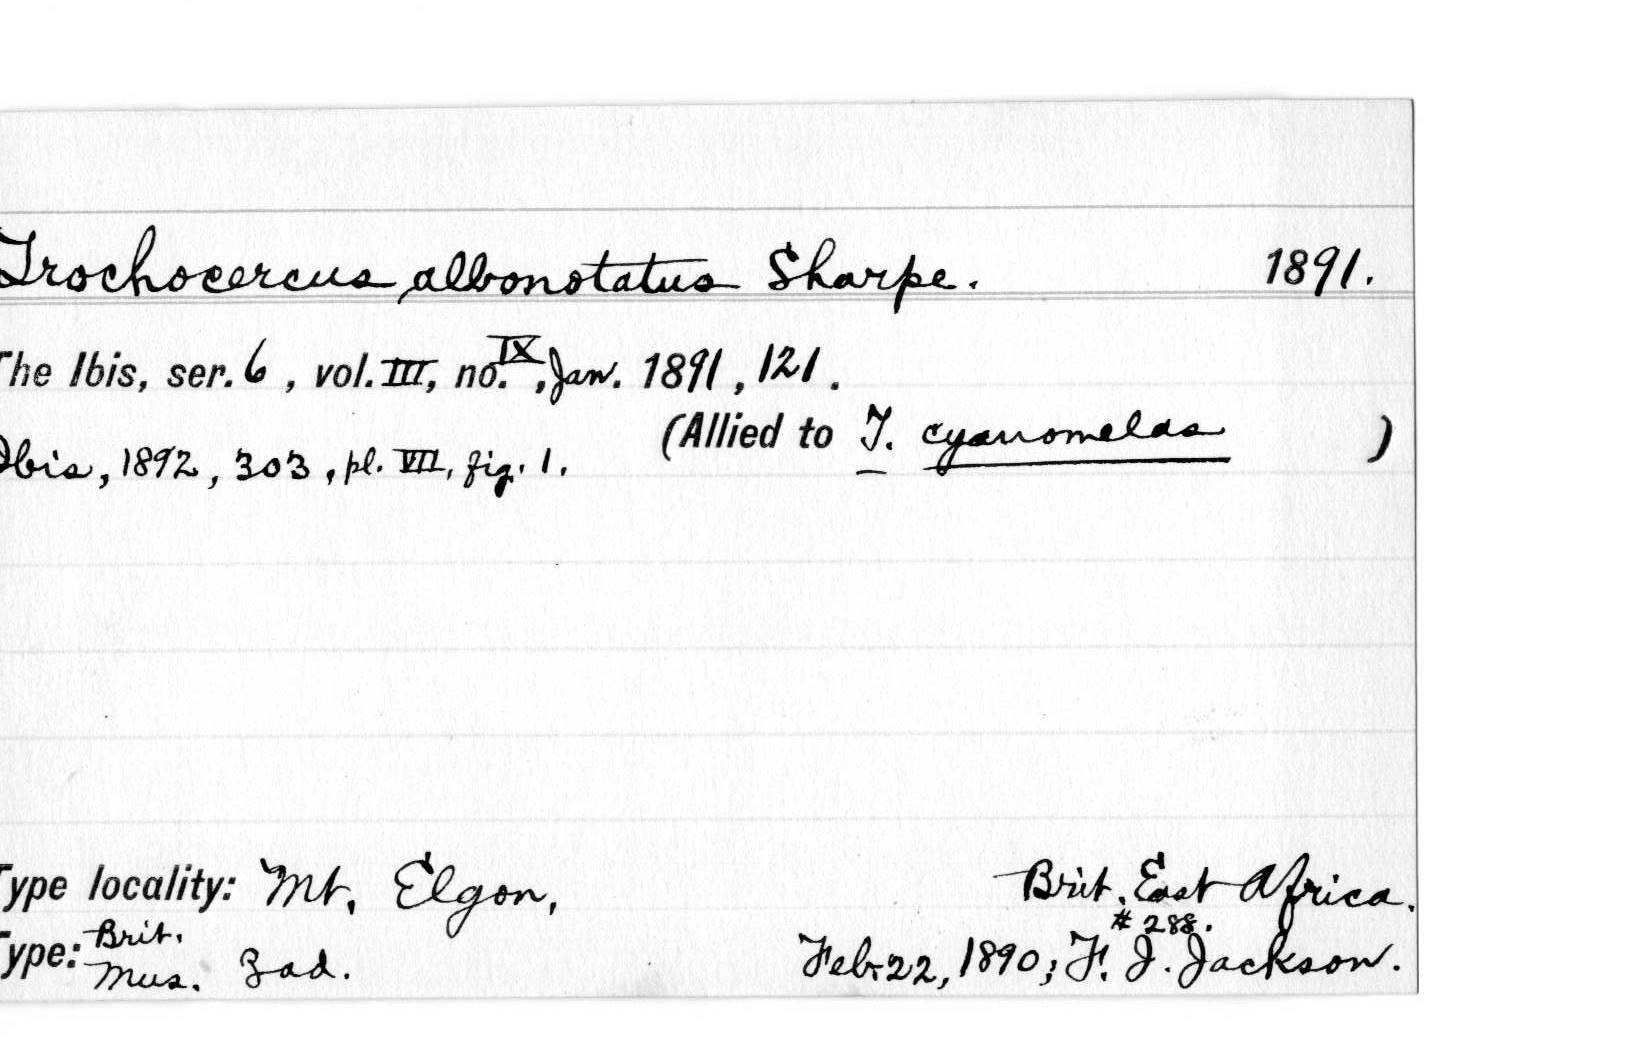 Trochocercus albonotatus Sharpe. 1891.
The Ibis, ser. 6, vol. III, no. IX, Jan. 1891, 121.
(Allied to T. cyanomelas )
Ibis, 1892, 303, pl. VII, fig. 1.
Type locality: Mt. Elgon, Brit. East Africa.
# 288.
Type: Brit. Mus. ad. Feb. 22, 1890; F. J. Jackson.